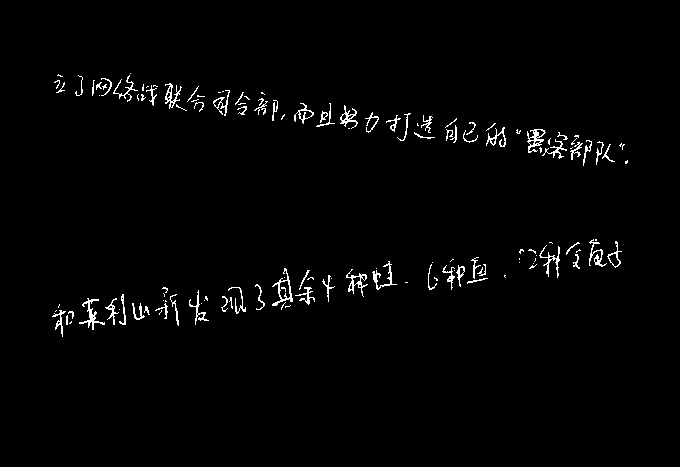 立了网络战联合司令部,而且努力打造自己的“黑客部队”.
和莱利山新发现了其余4种蛙.6种鱼.12种